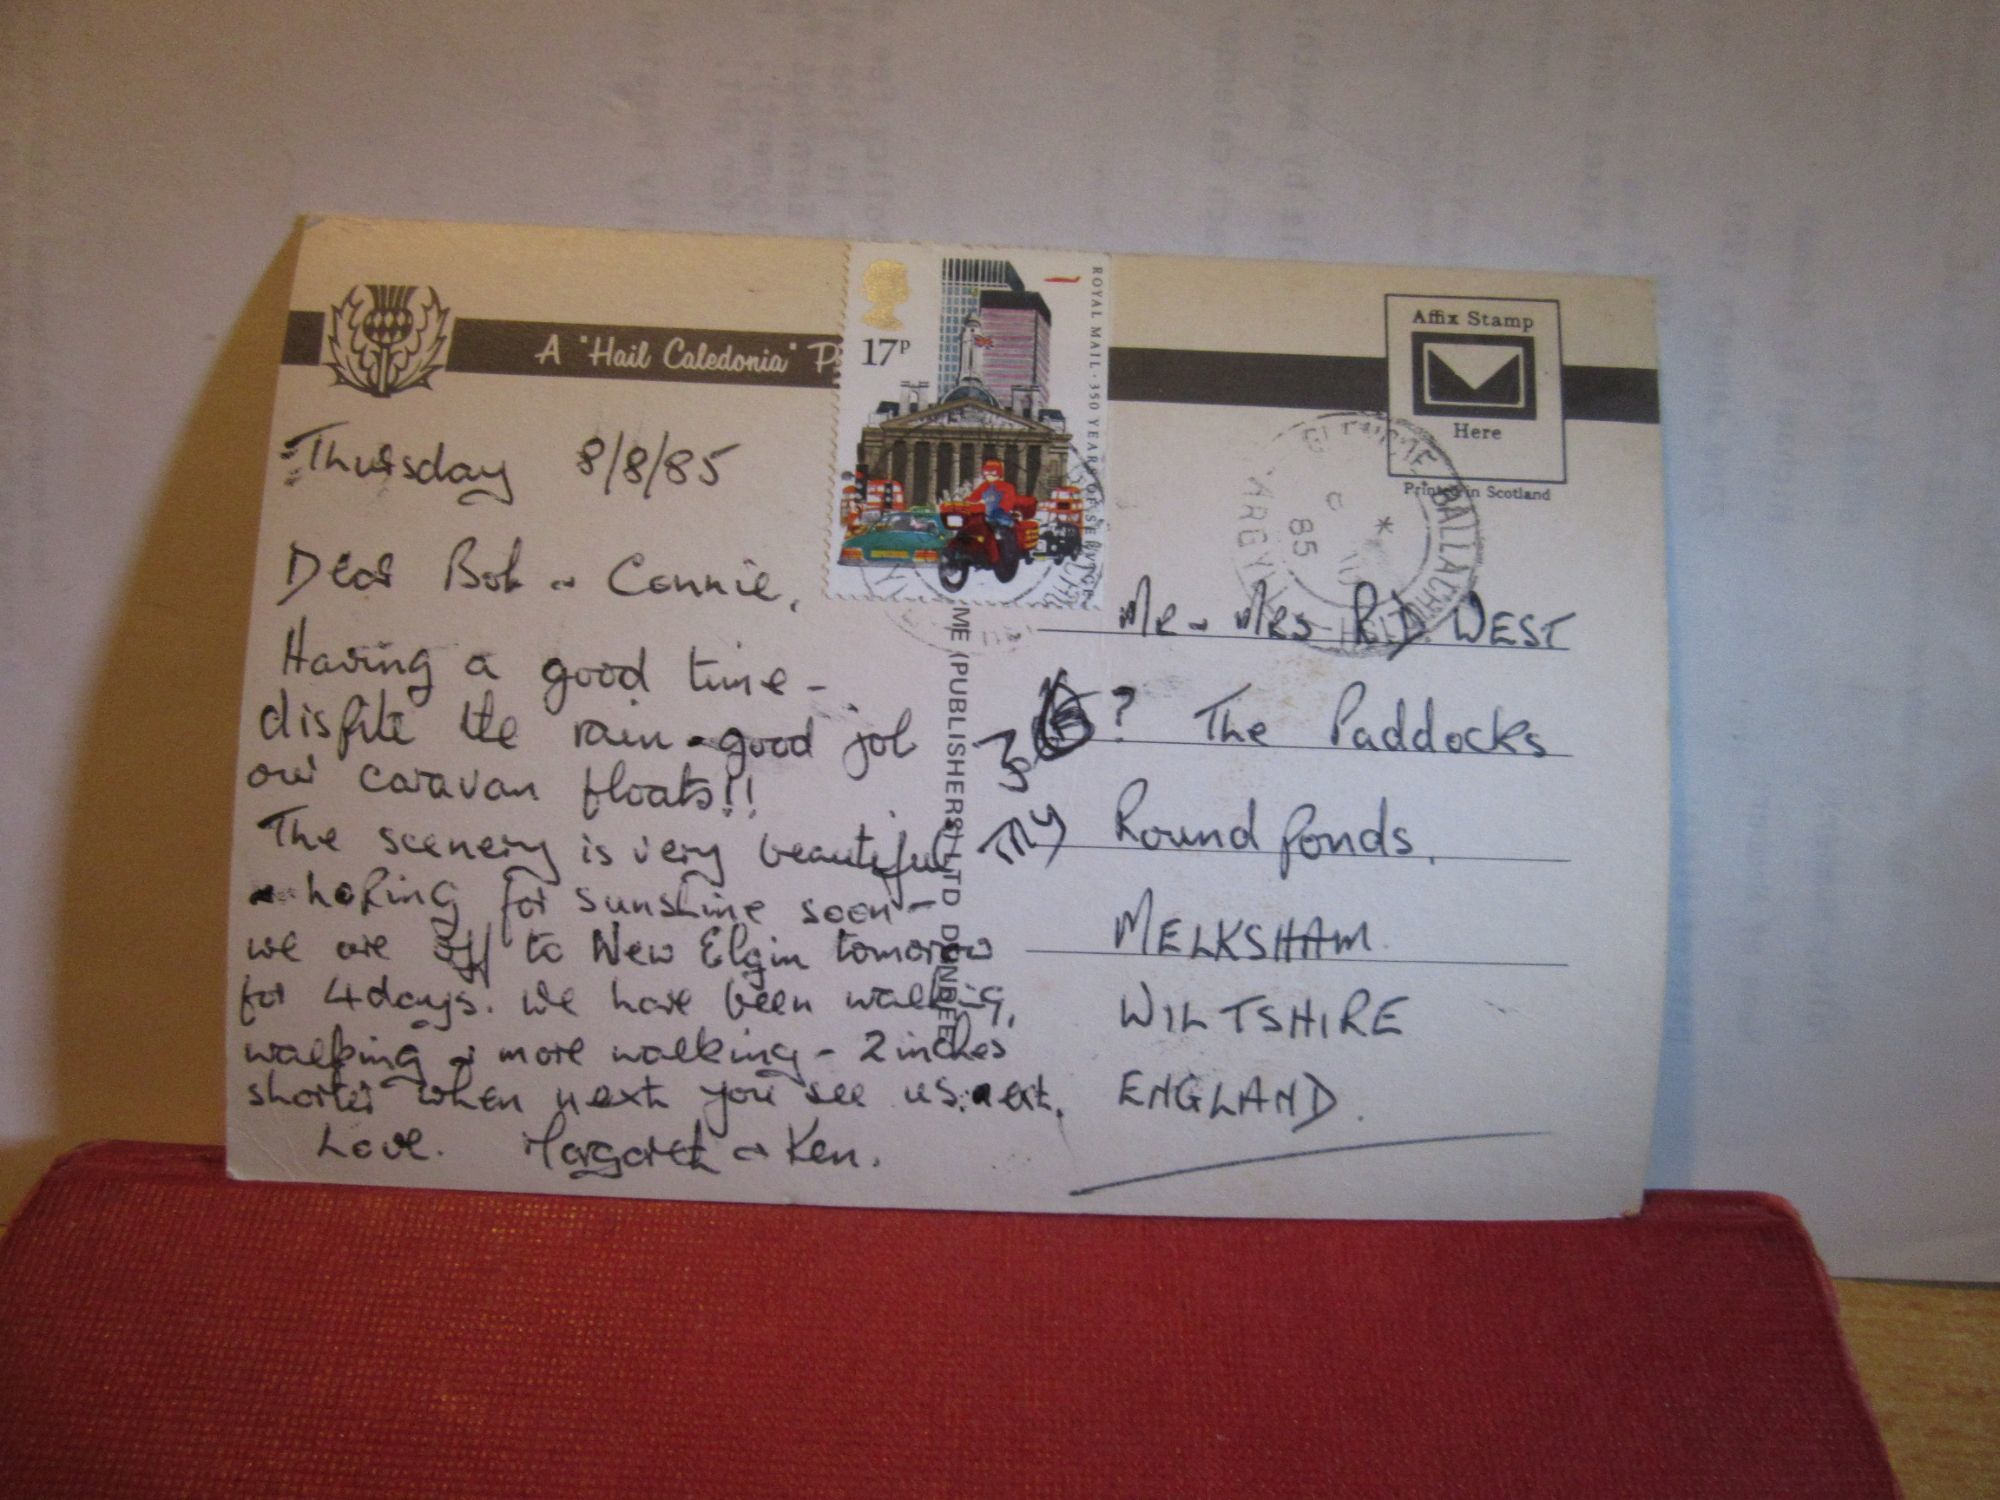 A "Hail Caledonia"
17P
ROYAL MAIL · 350 YEARS OF SERVICE
Affix Stamp
Here
Printed in Scotland
BALLACHULISH
ARGYLL
85
Thursday 8/8/85
Dear Bob & Connie,
Having a good time -
dispite the rain - good job
our caravan floats!!
The scenery is very beautiful
- hoping for sunshine soon -
we are off to New Elgin tomorrow
for 4 days. We have been walking,
walking & more walking - 2 inches
shorter when next you see us.
Love. Margaret & Ken.
ME (PUBLISHERS) LTD DUNDEE
Mr & Mrs R D WEST
? The Paddocks
Try Roundponds,
MELKSHAM.
WILTSHIRE
ENGLAND.